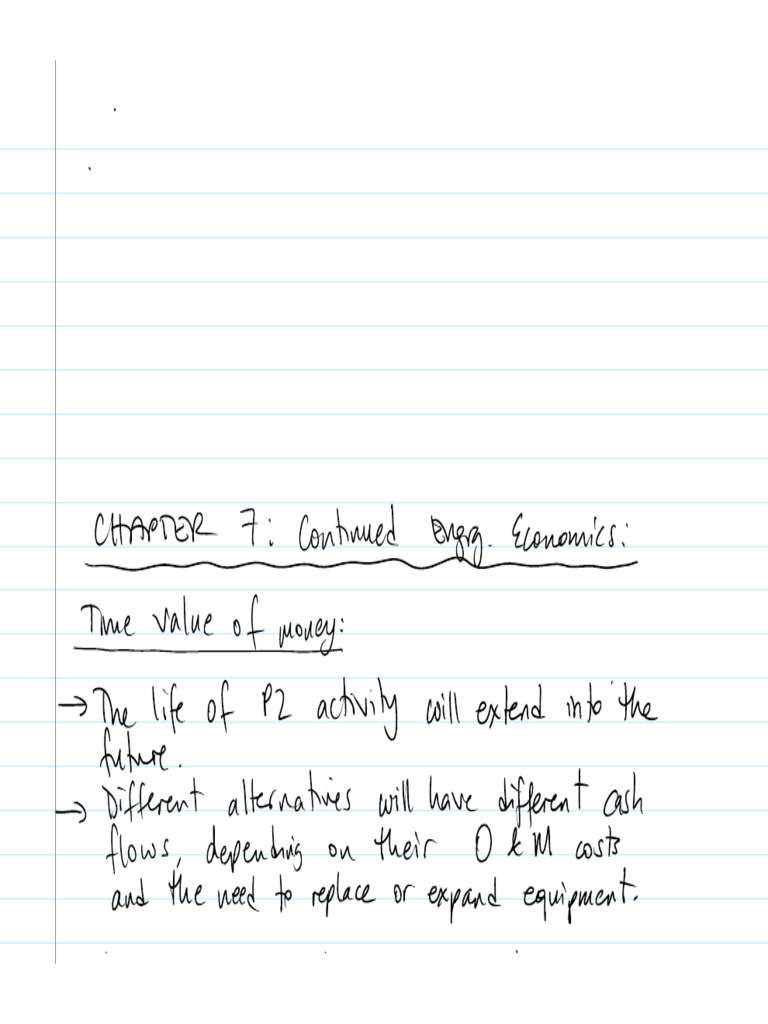 CHAPTER 7: Continued Engrg. Economics:
Time value of money:
→ The life of P2 activity will extend into the
future.
→ Different alternatives will have different cash
flows, depending on their O & M costs
and the need to replace or expand equipment.